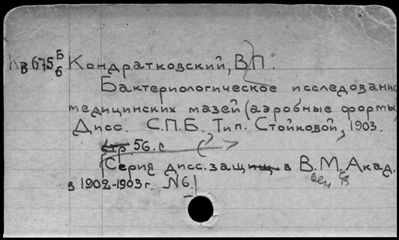 В675 Б/6 Кондратковский, В.П.
Бактериологическое исследование
медицинских мазей (аэробные формы)
Дисс. С.П.Б., Тип. Стойковой, 1903.
стр 56. с
(Серия дисс. защищ. в В.М. Акад.
в 1902-1903 г. №6.)